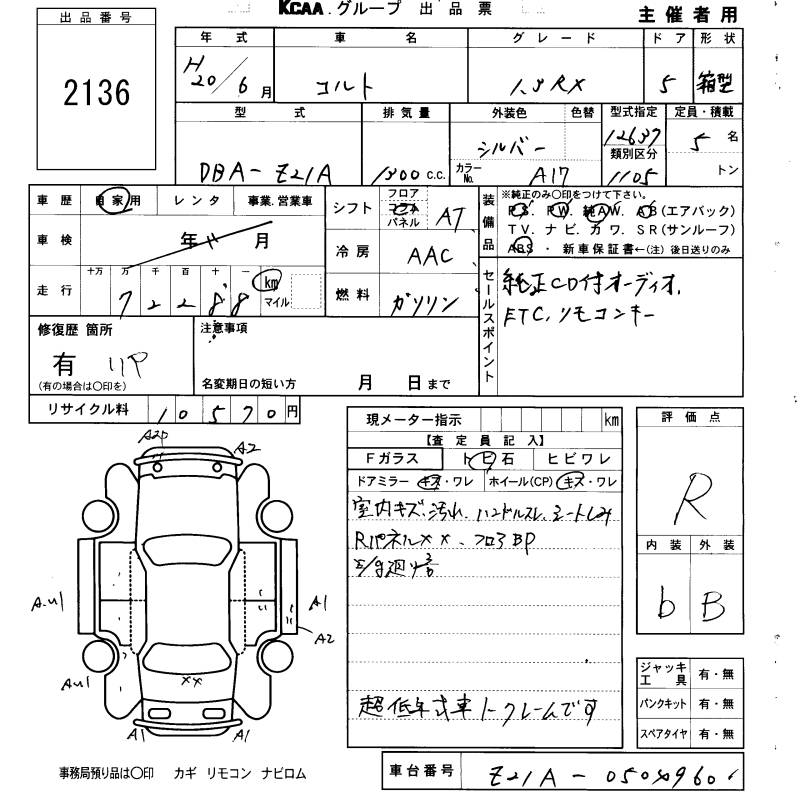 KCAA.グループ 出品票
主催者用
出品番号
2136
年式 車名 グレード ドア 形状
H20/6月 コルト 1.3RX 5 箱型
型式 排気量 外装色 色替 型式指定 定員・積載
DBA-Z21A 1300 c.c. シルバー カラーNo. A17 12637 5 名
類別区分 1105 トン
車歴 自家用 レンタ 事業.営業車
車検 年 月
走行 十万 万 千 百 十 一 km マイル
72288
シフト フロア コラム パネル AT
冷房 AAC
燃料 ガソリン
装備品 ※純正のみ〇印をつけて下さい。
P.S. P.W. 純A.W. A.B(エアバック)
T.V. ナビ. カワ. S.R(サンルーフ)
ABS ・ 新車保証書←(注)後日送りのみ
セールスポイント
純正CD付オーディオ.
ETC, リモコンキー
修復歴 箇所
有 リヤ
(有の場合は〇印を)
注意事項
名変期日の短い方 月 日まで
リサイクル料 10570円
現メーター指示 km
【査定員記入】
Fガラス トビ石 ヒビワレ
ドアミラー キズ・ワレ ホイール(CP) キズ・ワレ
室内キズ、汚れ、ハンドルスレ、シートしみ
Rパネル××、フロアBP
超低年式車
評価点
R
内装 外装
b B
ジャッキ工具 有・無
パンクキット 有・無
スペアタイヤ 有・無
A2P A2
A-U1 A1
A2
AU1
A1 A1
××
事務局預り品は〇印 カギ リモコン ナビロム
車台番号 Z21A-